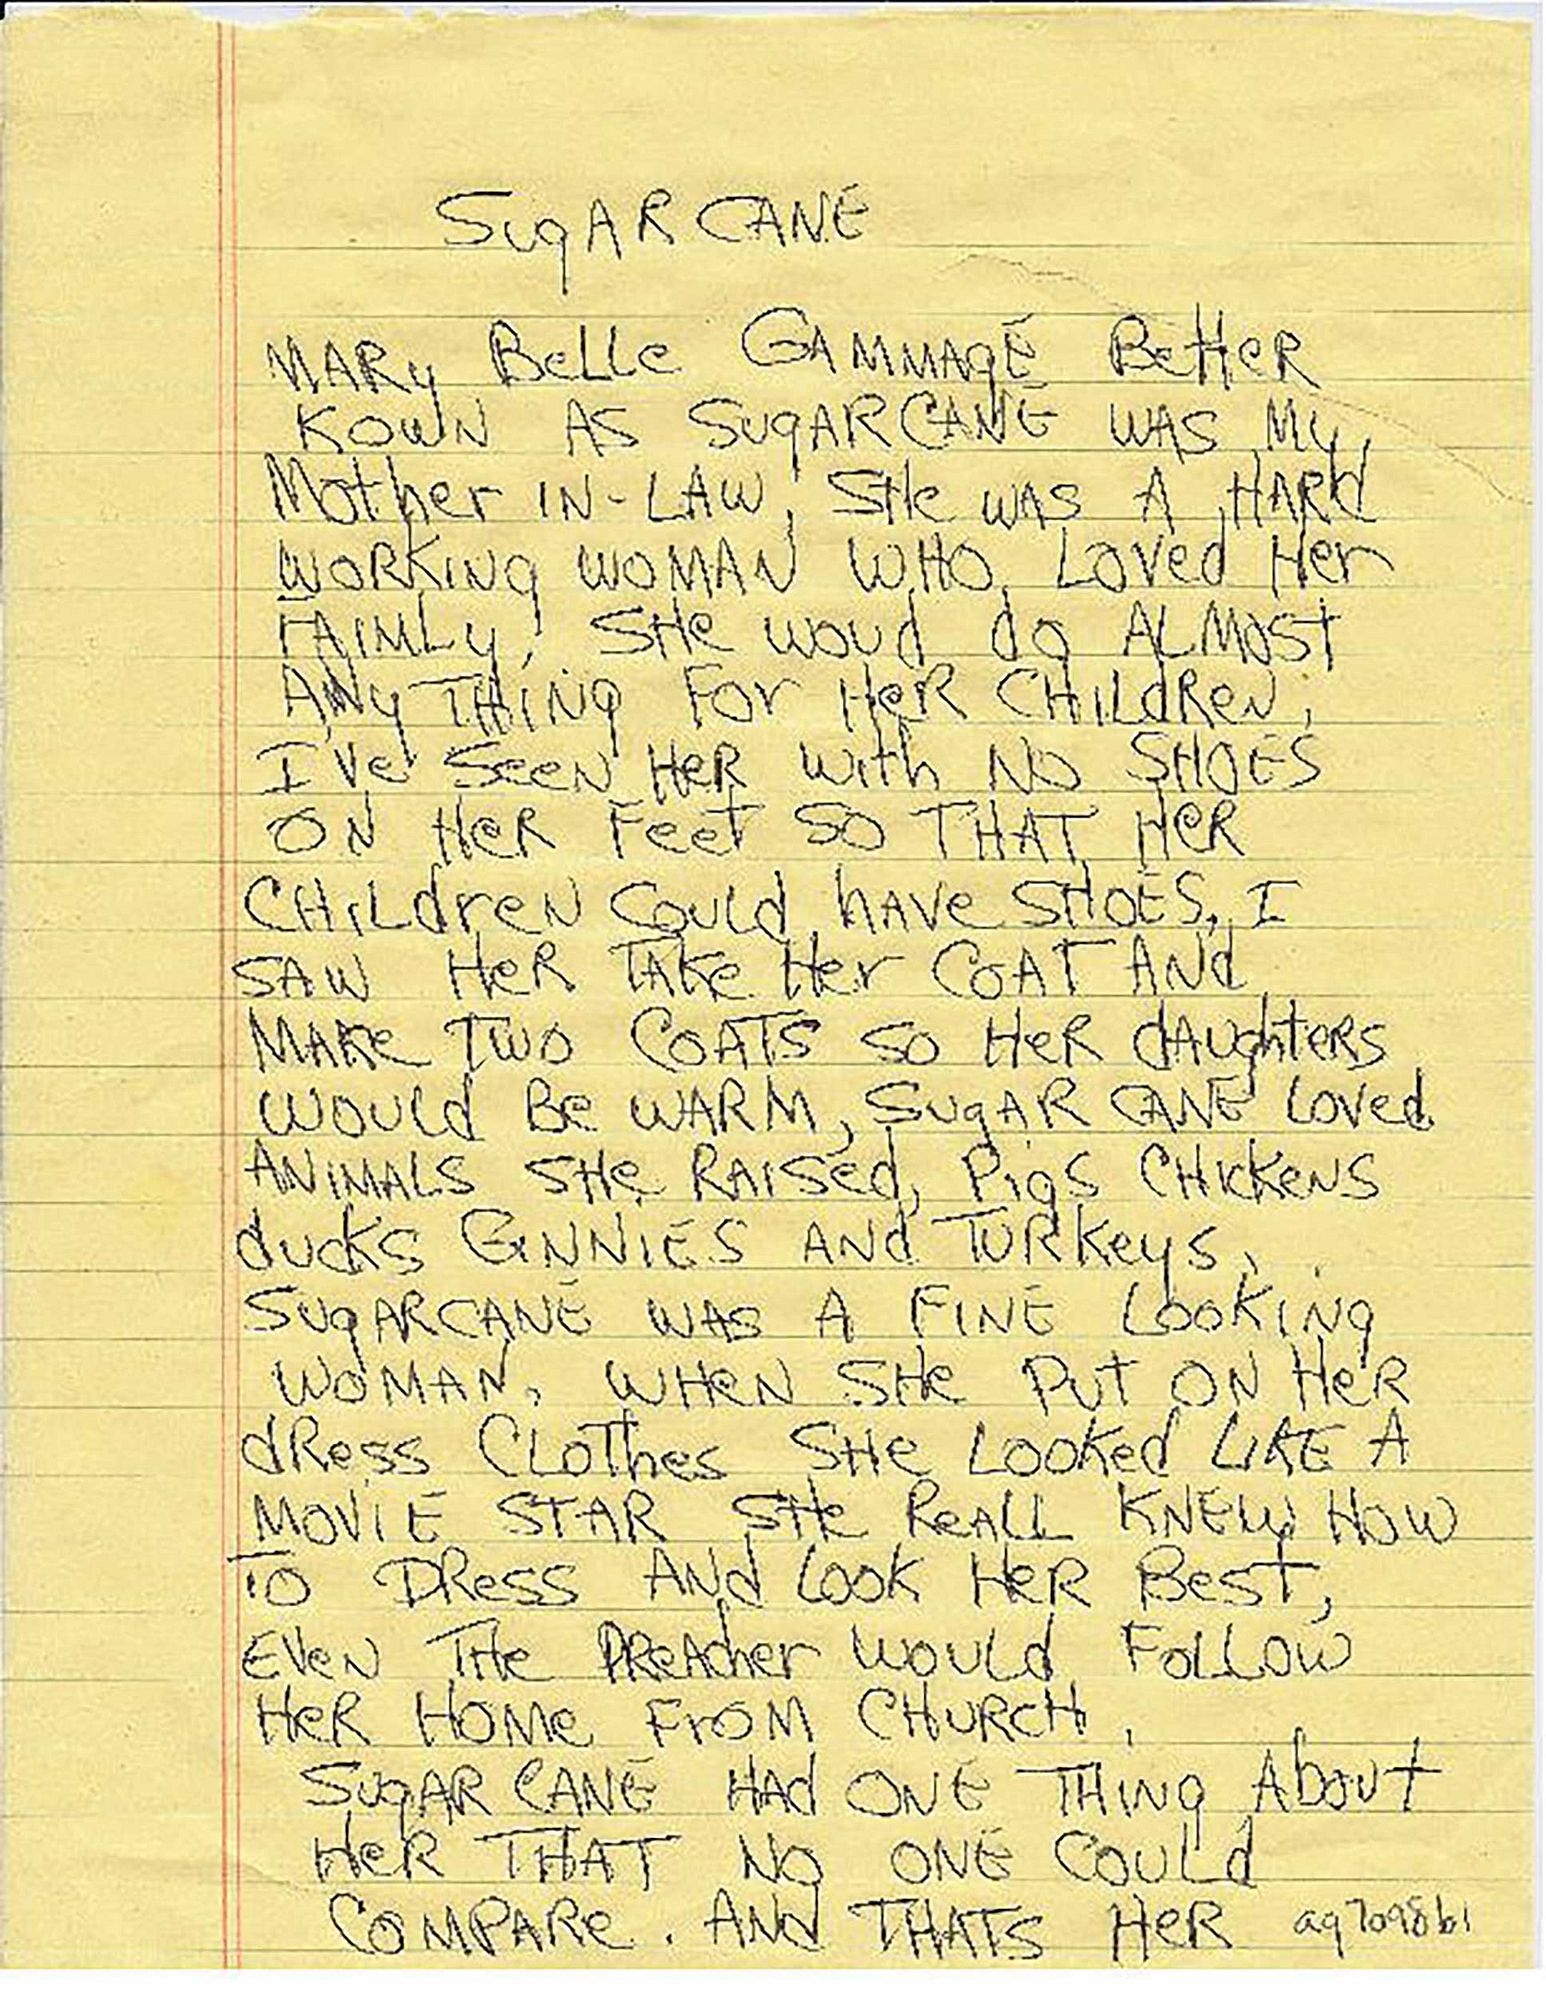 SugAR CANE
MARy BeLLe GAMMAgE BetteR
KOWN AS SugARCANE WAS My
Mother IN-LAW, SHe WAS A HARd
WORKINg WOMAN WHO Loved Her
FAIMLy, SHe Woud do ALMOSt
ANy THiNg For HeR CHiLdReN,
I've SeeN HeR With NO SHOES
ON HeR Feet SO THAT HeR
CHiLdreN COuLd hAVe SHOES, I
SAW HeR TAKe Her COAT ANd
MAKe TWO COATS SO HeR dAughteRS
WOuLd Be WARM, SugAR CANE Loved
ANiMALS SHe RAISed, PigS CHicKeNS
ducKS GiNNiES ANd TURKeyS,
SugARCANE WAS A FiNE LOOKiNg
WOMAN. WHeN SHe Put ON HeR
dReSS CLOTheS SHe LOOKed LiKE A
MOViE STAR SHe ReALL KNEW HOW
TO DReSS ANd LOOK HeR BeST,
EVeN THe PReAcher WOuLd FOLLOW
HeR HOMe FrOM CHuRCH,
SugAR CANE HAd ONE THiNg AbOut
HeR THAT NO ONE COuLd
COMPARe. ANd THATS HeR ag7098b1